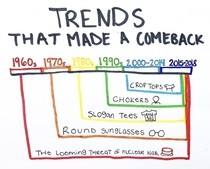 TRENDS
THAT MADE A COMEBACK
1960s 1970s 1980s 1990s 2000-2014 2015-2018
CROP TOPS
CHOKERS
SLOGAN TEES
ROUND SUNGLASSES
THE LOOMING THREAT OF NUCLEAR WAR